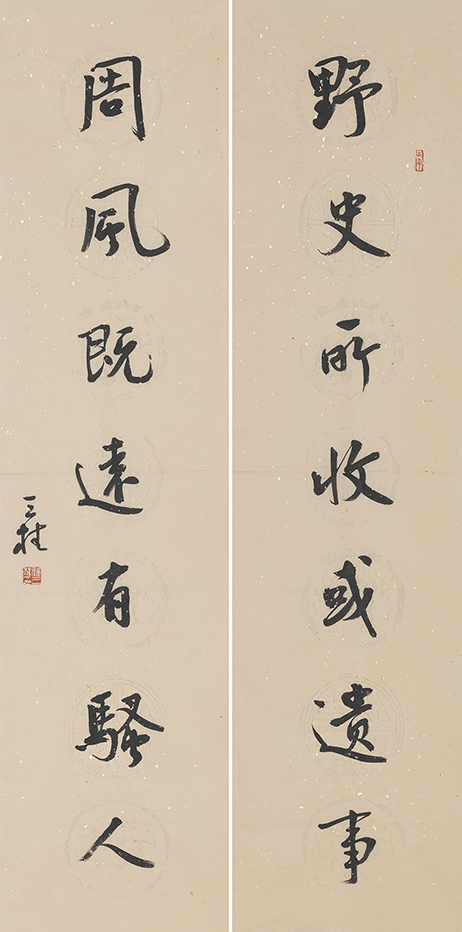 野史所收或遗事
周風既遠有騷人